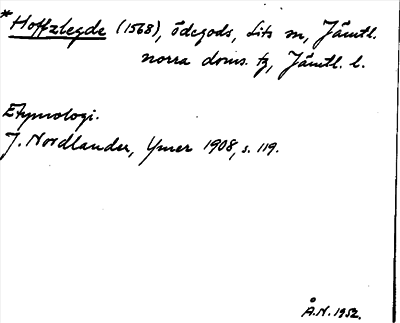 *Hoffzlegde (1568), ödegods, Lits sn, Jämtl.
norra doms. tg, Jämtl. l.
Etymologi.
J. Nordlander, Ymer 1908, s. 119.
Å.N. 1952.